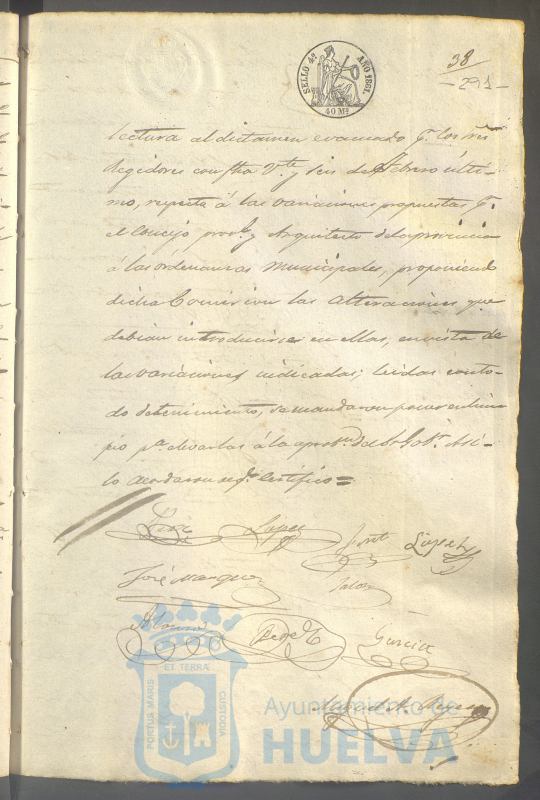 SELLO 4º AÑO 1861.
40 Mª
38
- 291 -
lectura al dictamen evacuado pr. los Srs
Regidores con fha Vte. y seis de Febrero últi-
mo, respecto á las variaciones propuestas pr.
el Consejo provl. y Arquitecto de la provincia
á las ordenanzas municipales, proponiendo
dicha Comision las alteraciones que
debian introducirse en ellas, en vista de
las variaciones indicadas; leidas con to-
do detenimiento, se mandaron poner en lim-
pio pa. elevarlas á la aprobn. del Sr Gobr. Asi
lo acordaron segn. Certifico =
Lopez
José Marquez
Alonso
Garcia
PORTUS MARIS ET TERRÆ CUSTODIA
Ayuntamiento de
HUELVA